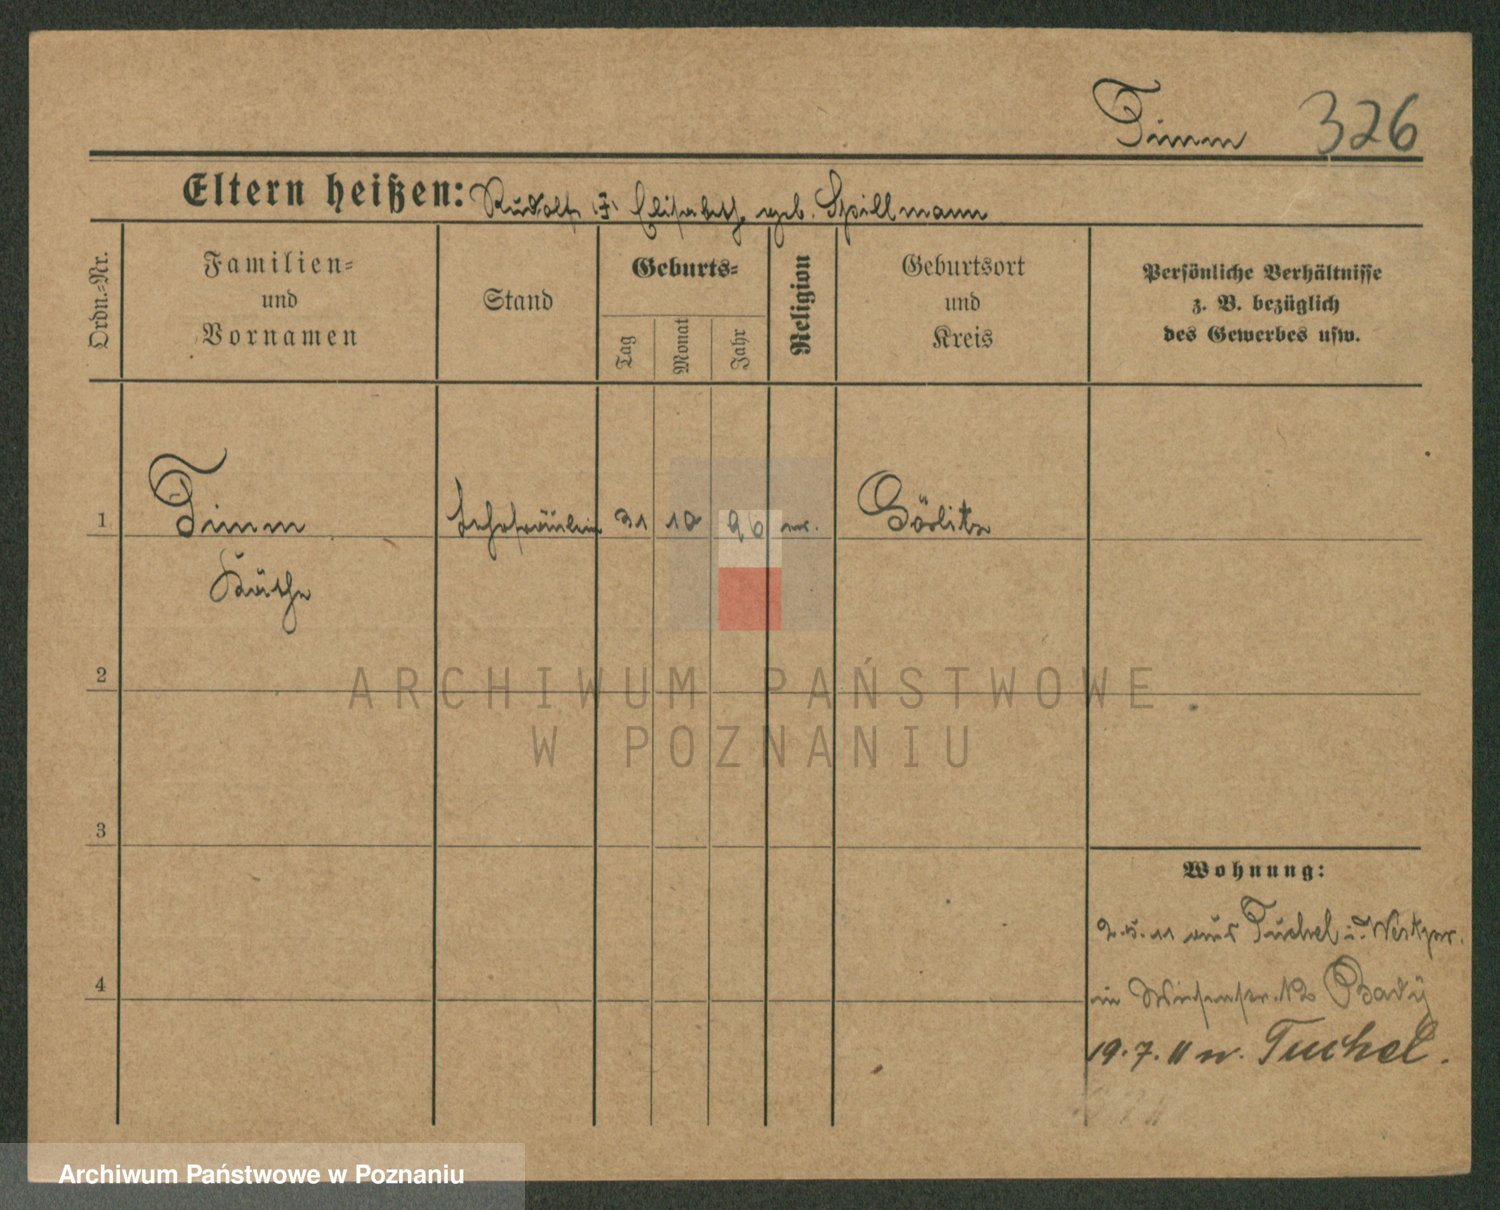 Timm 326
Eltern heißen: Rudolf Elisabeth geb. Spillmann
Ordn.-Nr.
Familien-
und
Vornamen
Stand
Geburts-
Tag
Monat
Jahr
Religion
Geburtsort
und
Kreis
Persönliche Verhältnisse
z. B. bezüglich
des Gewerbes usw.
1 Timm Lehrfräulein 31 10 96 ev. Görlitz
Käthe
2
3
4
Wohnung:
2.5.11 aus Tuchel i. Westpr.
in Wiesenstr. 12
19.7.11 n. Tuchel.
ARCHIWUM PAŃSTWOWE
W POZNANIU
Archiwum Państwowe w Poznaniu